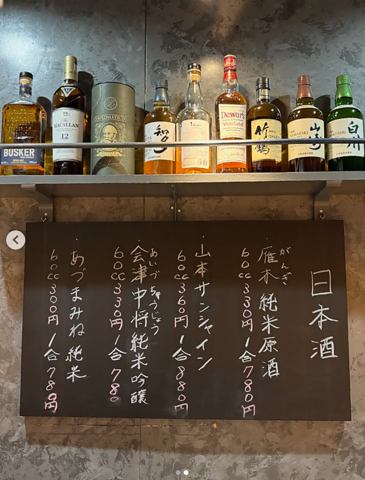 BUSKER
MACALLAN
12
知多
Dewar's
竹鶴
山崎
白州
日本酒
がんぎ
雁木 純米原酒
60cc 330円 1合 780円
・山本サンシャイン
60cc 360円 1合 880円
あいづちゅうじょう
・会津中将 純米吟醸
60cc 330円 1合 780
・あづまみね 純米
60cc 300円 1合 780円